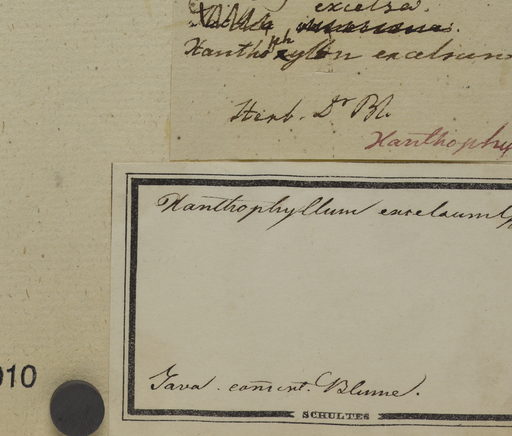 excelsa.
Xanthophyllon excelsum
Herb. Dr Bl.
Xanthophy
Xanthophyllum excelsum
Java. comm̄. Blume.
SCHULTES
010